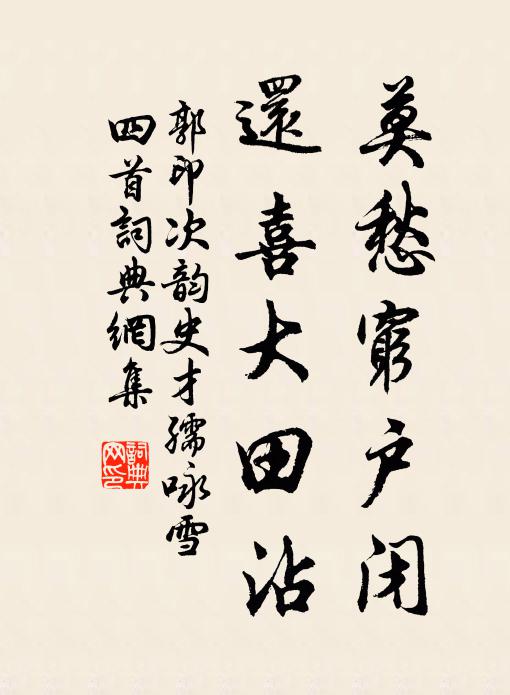 莫愁窮户闭
還喜大田沾
郭印次韵史才孺咏雪
四首詞典網集
詞典
网印